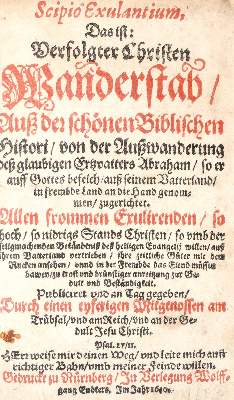 Scipio Exulantium,
Das ist:
Verfolgter Christen
Wanderstab /
Auß der schönen Biblischen
Histori / von der Außwanderung
deß glaubigen Ertzvatters Abraham / so er
auff Gottes befelch / auß seinem Vatterland /
in frembde Land an die Hand genom-
men / zugerichtet.
Allen frommen Exulirenden / so
hoch / so nidrigs Stands Christen / so vmb der
seligmachenden Bekändtnuß deß heiligen Evangelij willen / auß
ihrem Vatterland vertrieben / ihre zeitliche Güter mit dem
Rucken ansehen / vnnd in der Frembde das Elend müssen
bawen / zu trost vnd brünstiger anreitzung zur Ge-
dult vnd Beständigkeit.
Publiciret vnd an Tag gegeben /
Durch einen eyferigen Mitgnossen am
Trübsal / vnd am Reich / vnd an der Ge-
dult Jesu Christi.
Psal. 27/11.
HErr weise mir deinen Weg / vnd leite mich auff
richtiger Bahn / vmb meiner Feinde willen.
Gedruckt zu Nürnberg / In Verlegung Wolff-
gang Endters, Im Jahr